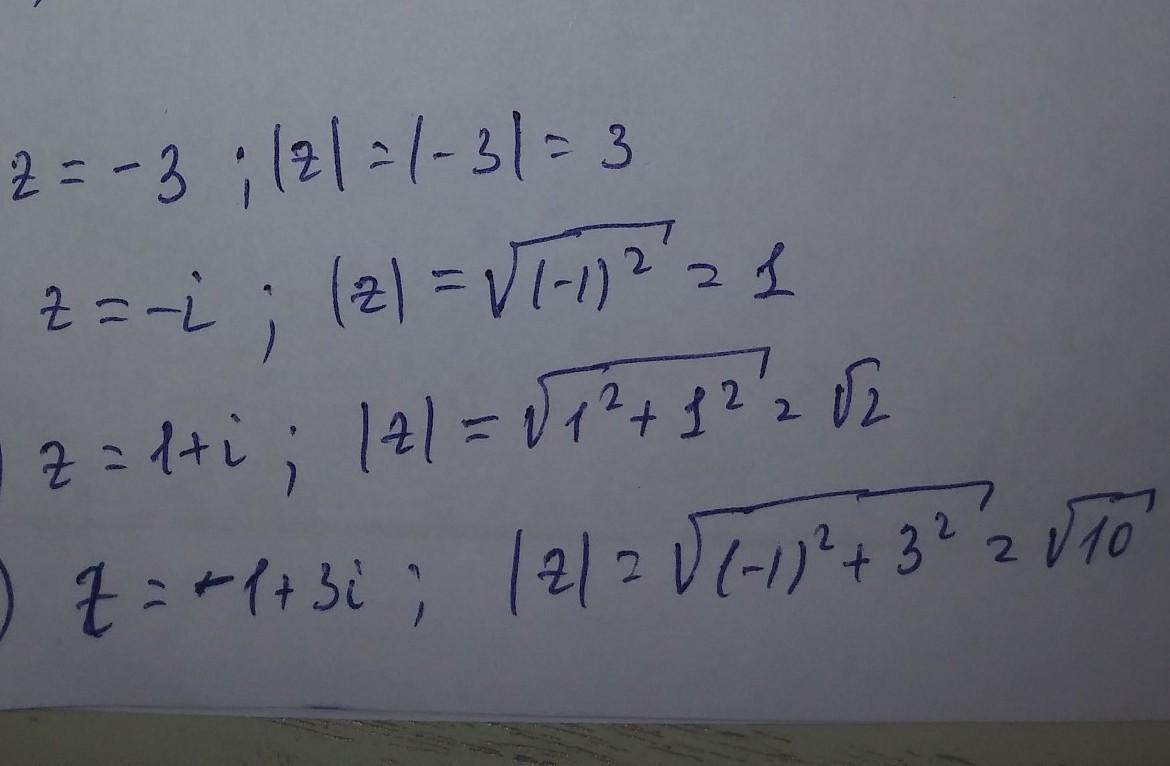 z = -3 ; |z| = |-3| = 3
z = -i ; |z| = √(-1)² = 1
) z = 1+i ; |z| = √1²+1² = √2
) z = -1+3i ; |z| = √(-1)²+3² = √10